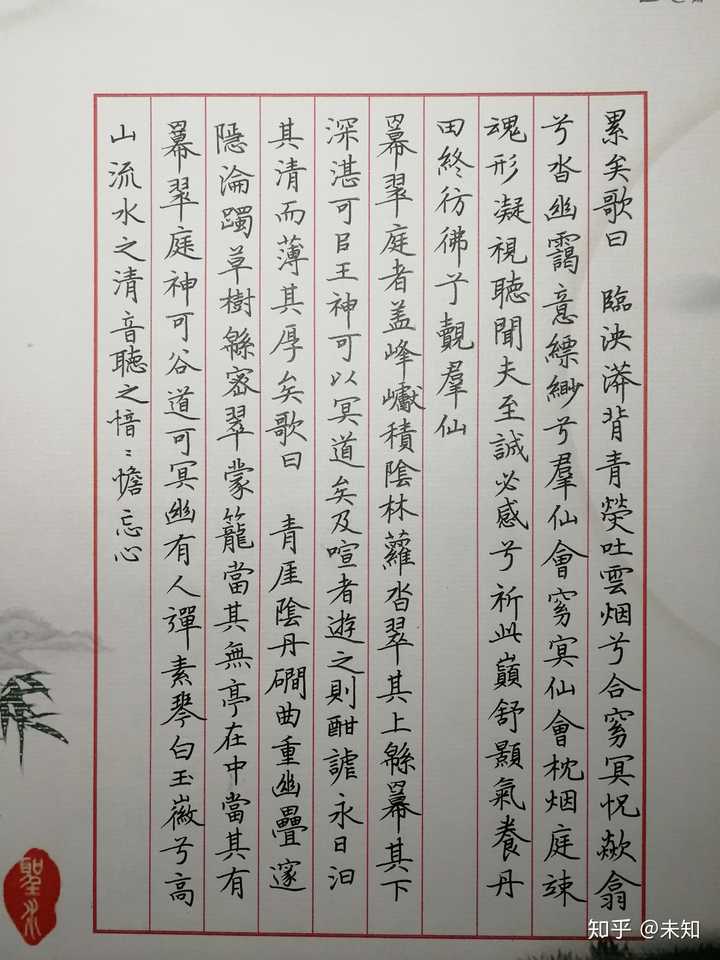 累矣歌曰 臨泱漭背青熒吐雲烟兮合窈冥怳歘翕
兮沓幽靄意縹緲兮羣仙會窈冥仙會枕烟庭竦
魂形凝視聽聞夫至誠必感兮祈此巔舒顥氣養丹
田終彷彿兮覿羣仙
羃翠庭者盖峰巘積陰林蘿沓翠其上緜羃其下
深湛可㠯王神可以冥道矣及喧者遊之則酣謔永日汩
其清而薄其厚矣歌曰 青崖陰丹磵曲重幽疊邃
隱淪躅草樹緜宻翠蒙籠當其無亭在中當其有
羃翠庭神可谷道可冥幽有人彈素琴白玉徽兮高
山流水之清音聽之愔〻憺忘心
聖水
知乎 @未知